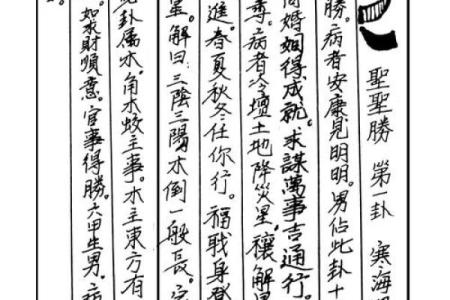 聖聖勝 第一卦 寒海
勝。病者安康見明明。男佔此卦十
婚姻得成就。求謀萬事吉通行。
尊。病者冷壇土地降災星。禳解
進。春夏秋冬任你行。福戩身登
星。解曰:三陰三陽,木倒一般長。
卦属木。角木蛟主事。木主東方有
如求財順意。官事得勝。六甲生男。病